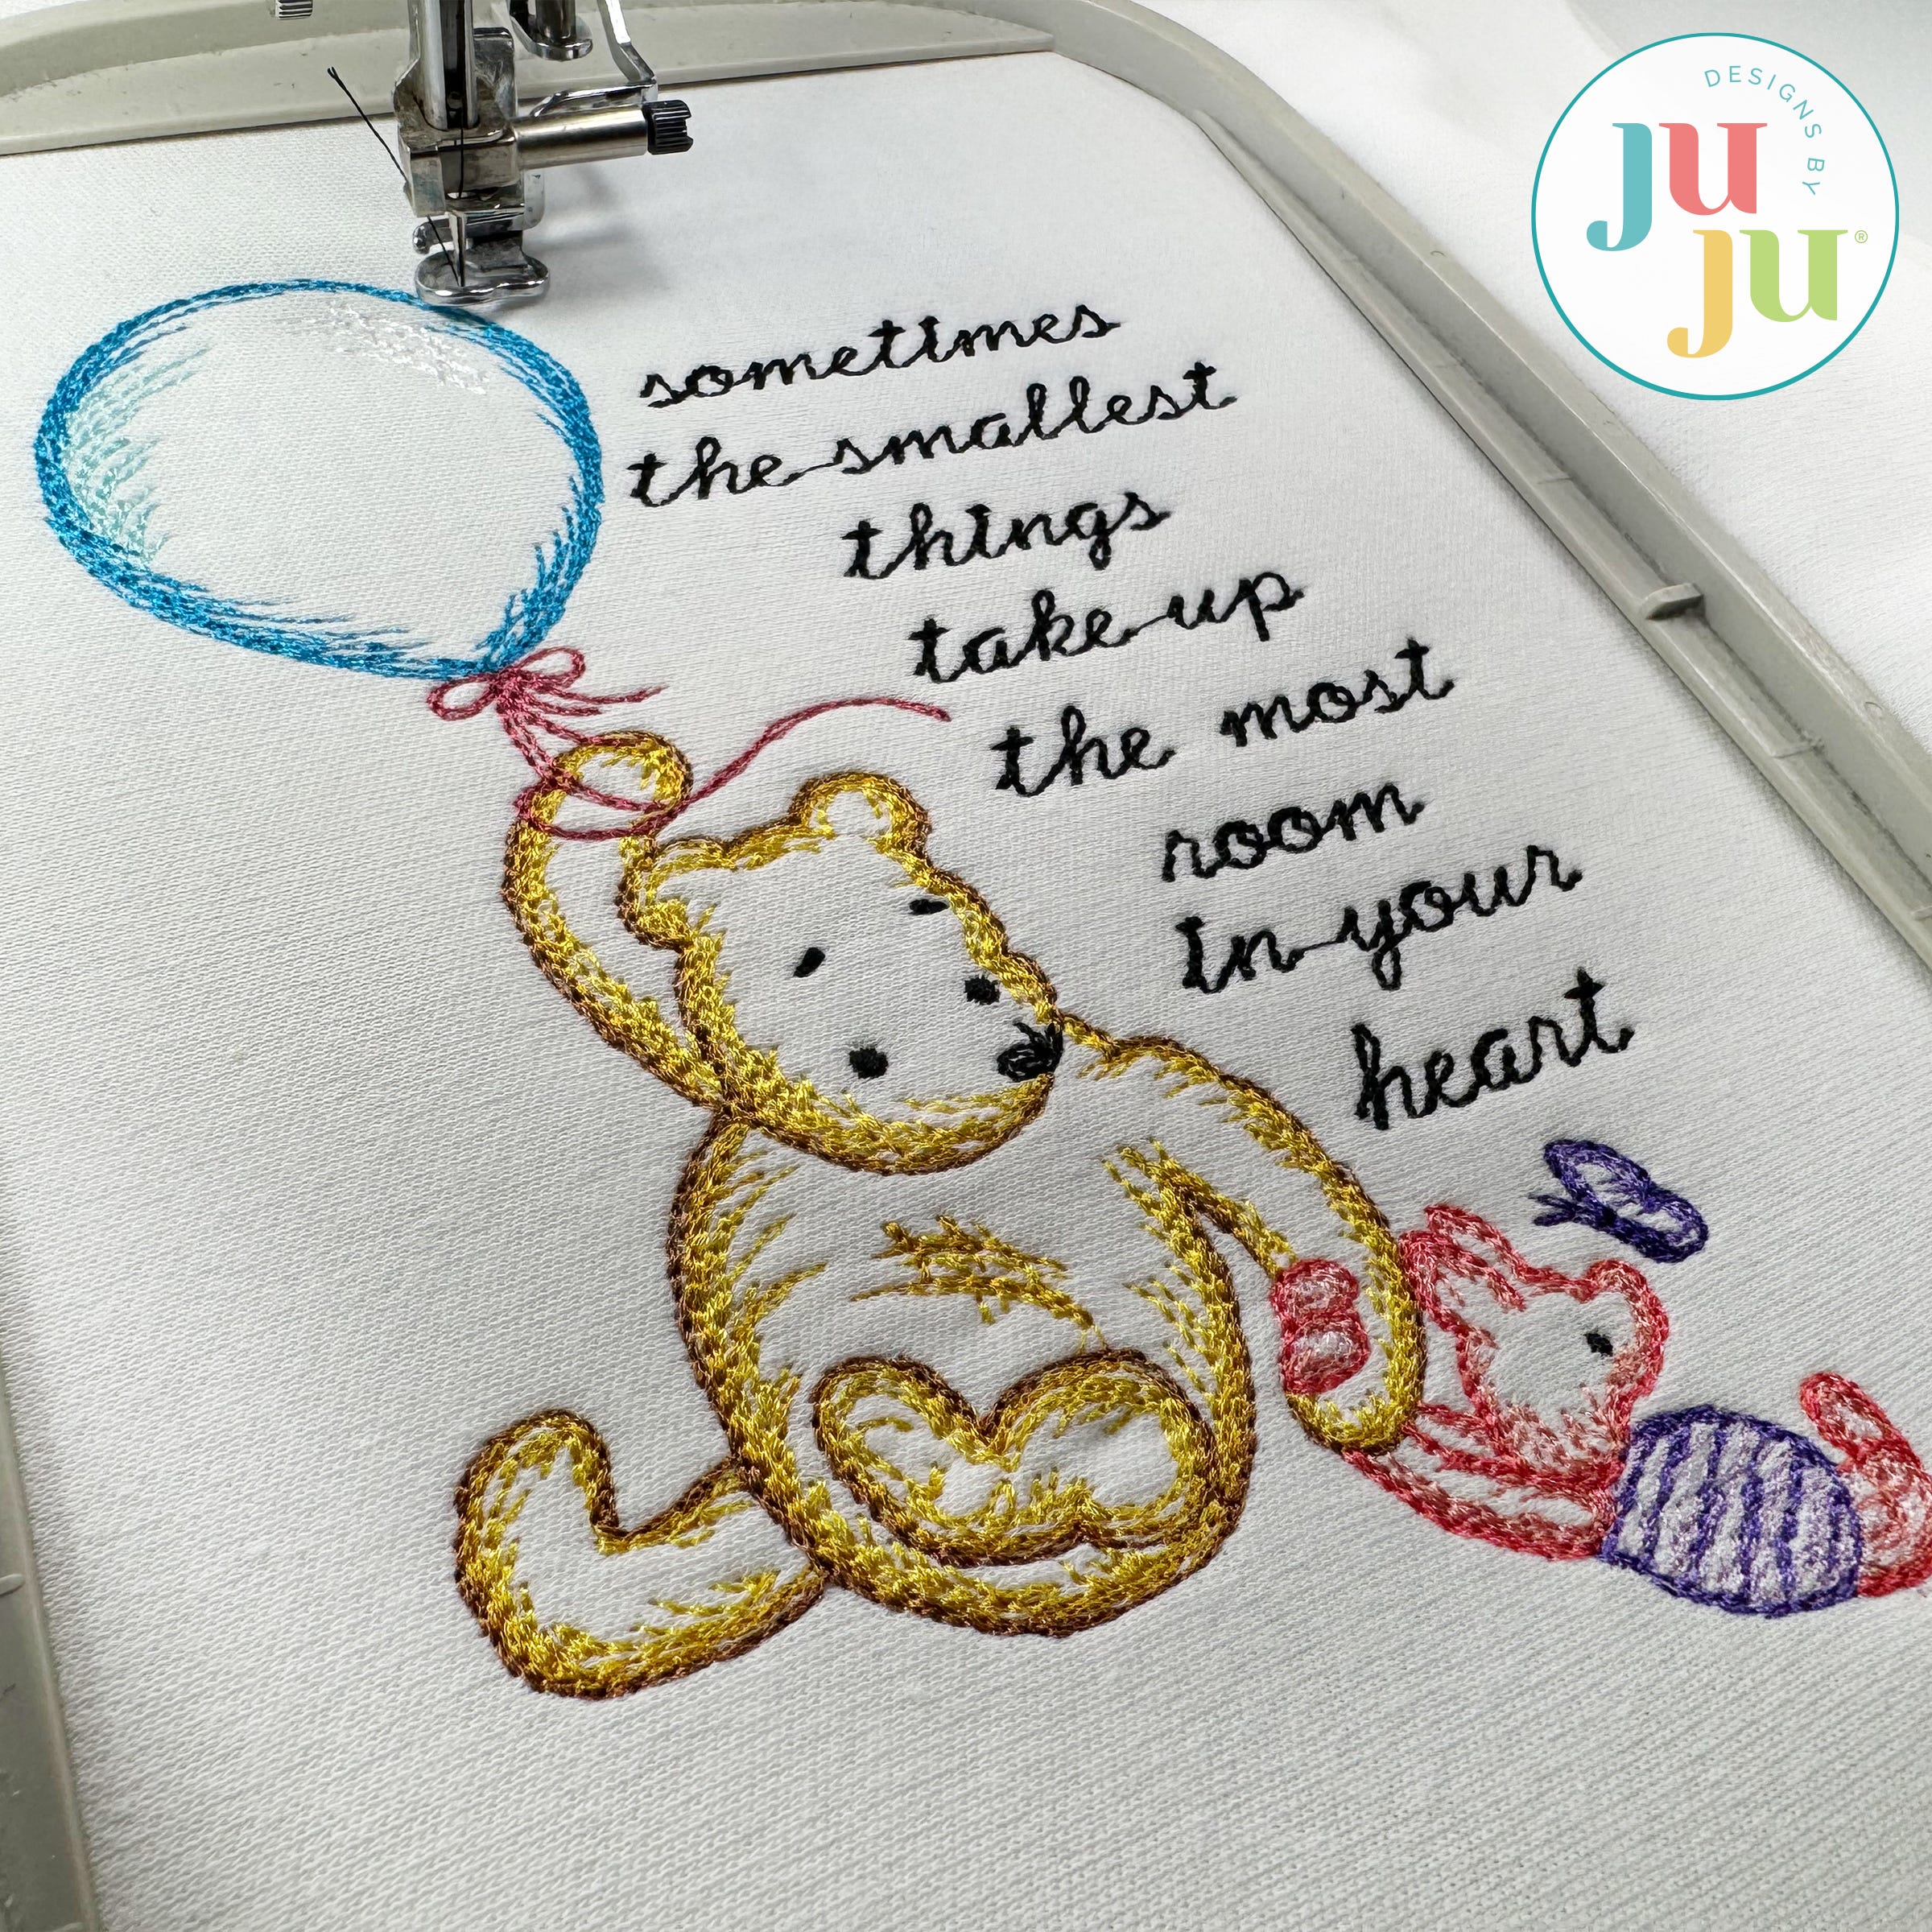 DESIGNS BY
JU
JU®
sometimes
the smallest
things
take up
the most
room
in your
heart